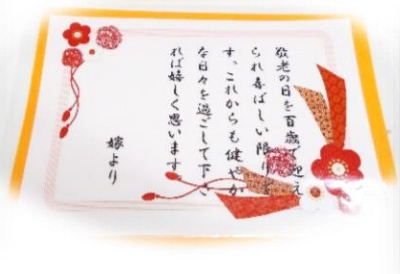 敬老の日を百歳で迎え
られ喜ばしい限りで
す。これからも健やか
な日々を過ごして下さ
れば嬉しく思います
嫁より